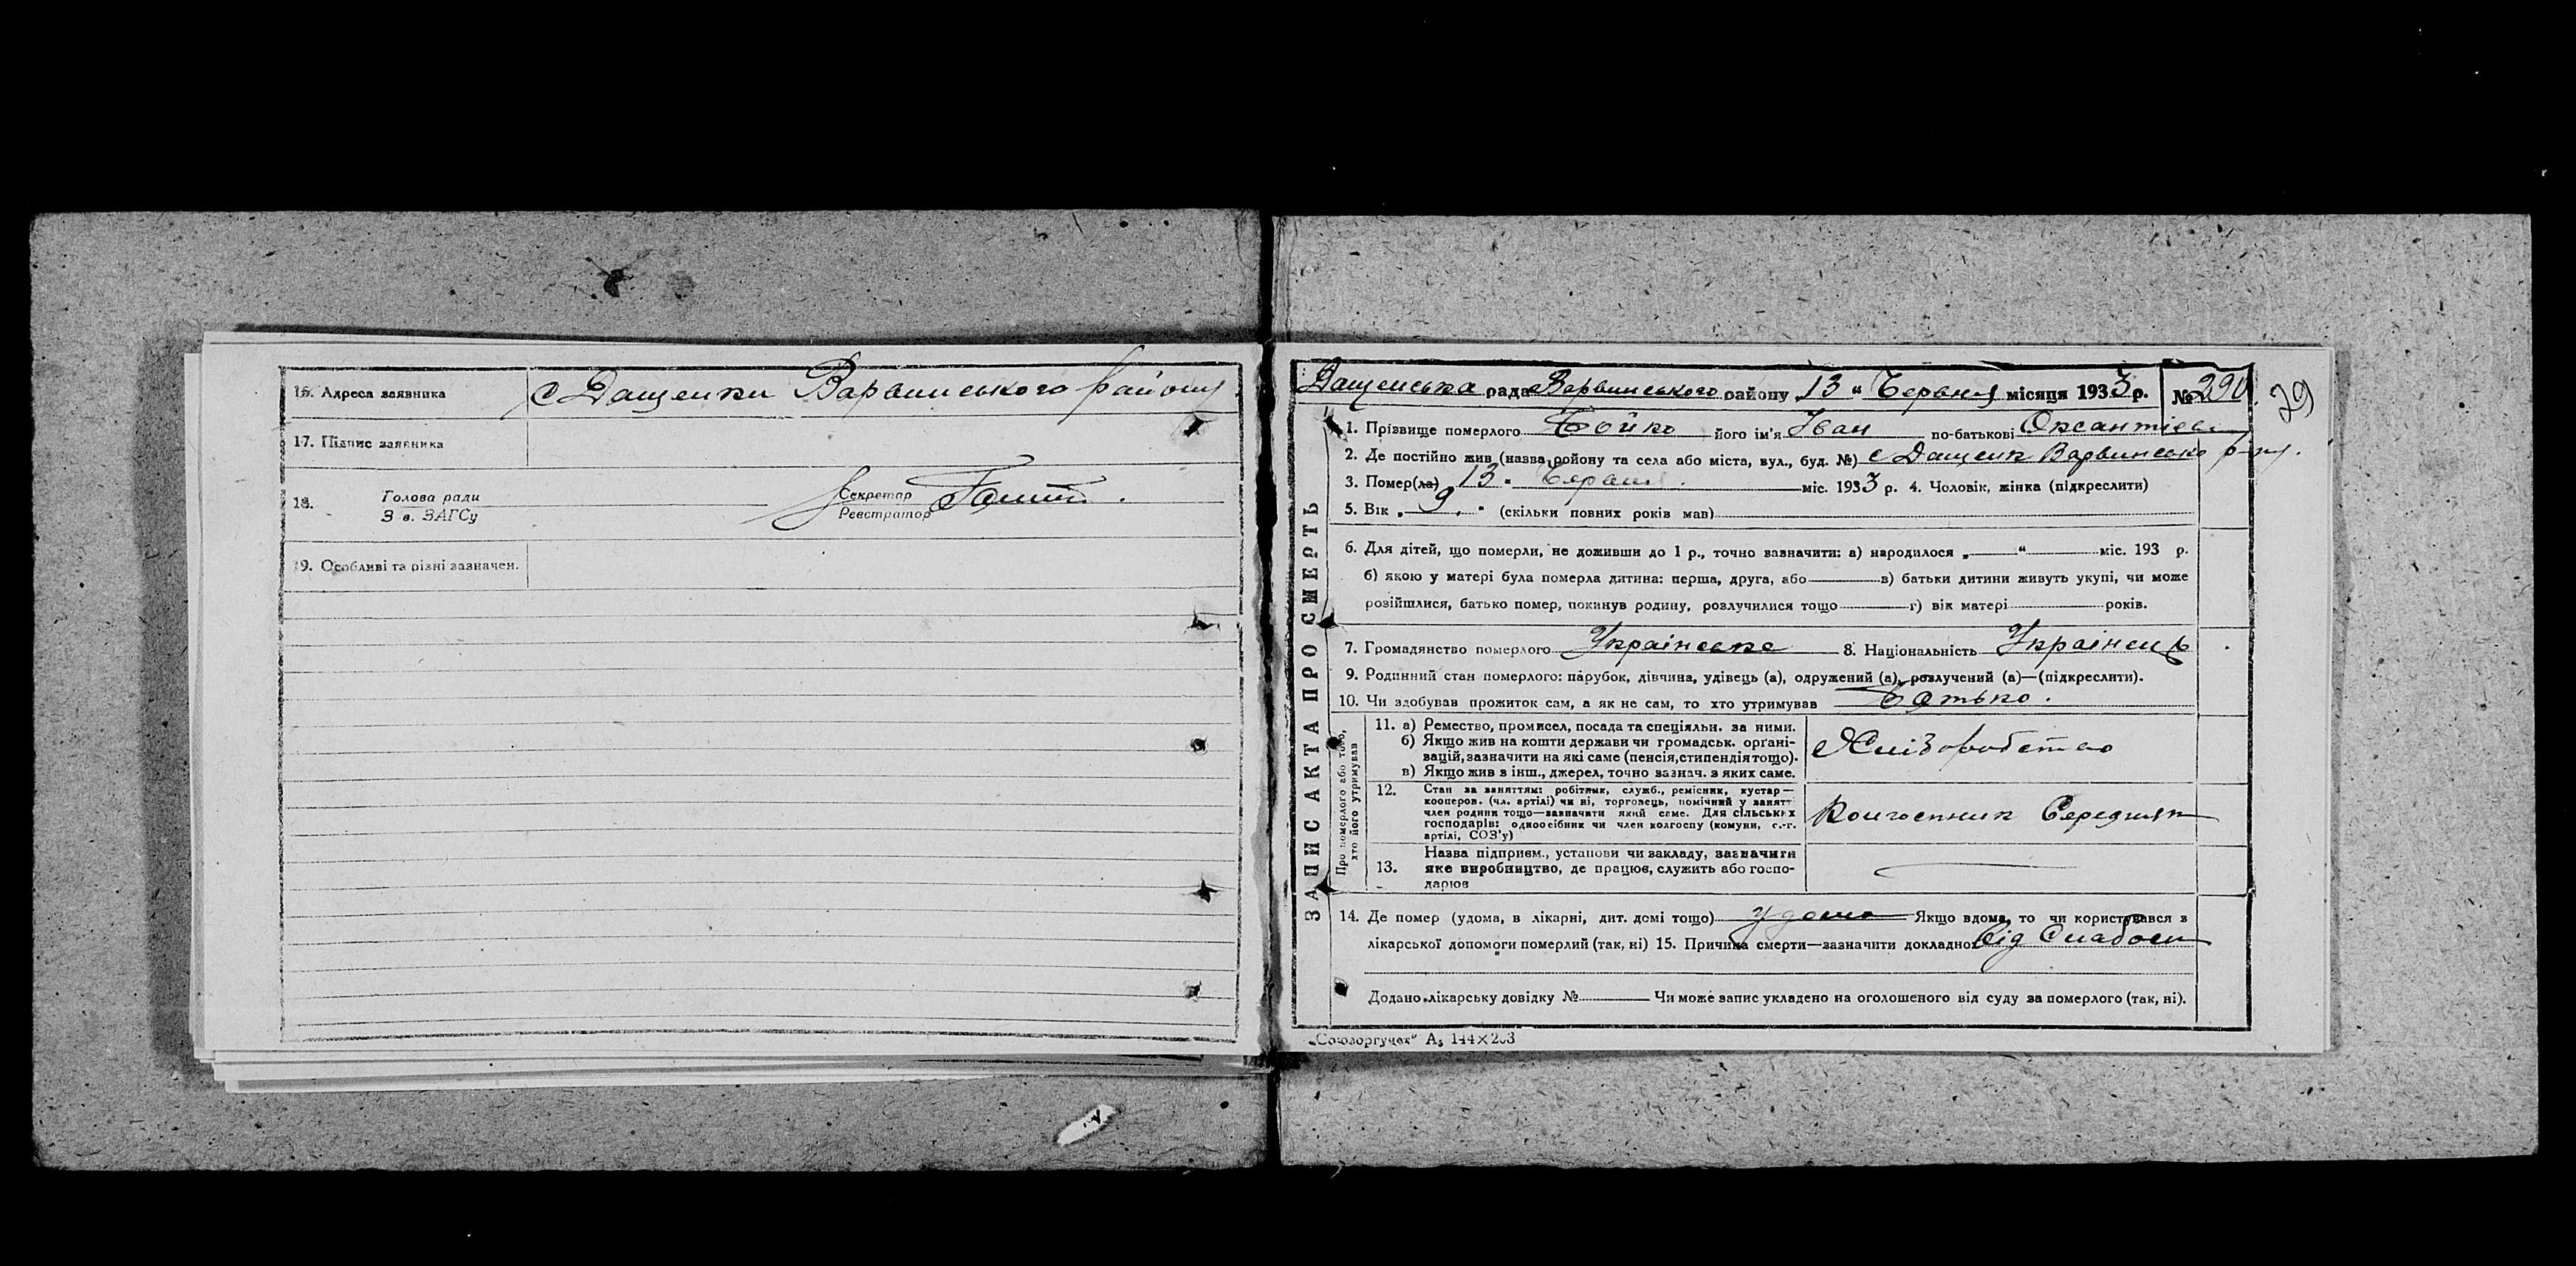 16. Адреса заявника с Дащенки Варвинського району
17. Підпис заявника
18. Голова ради
З в. ЗАГСу
Секретар
Реєстратор
19. Особливі та різні зазначен.
Дащенська рада Варвинського району „13 " Червня місяця 1933 р. № 290. 29
ЗАПИС АКТА ПРО СМЕРТЬ
1. Прізвище померлого Бойко його ім'я Іван по-батькові
2. Де постійно жив (назва району та села або міста, вул., буд. №) с Дащенк Варвинсько р-ну.
3. Помер(ла) 13 " Червня міс. 1933 р. 4. Чоловік, жінка (підкреслити)
5. Вік „ 9. " (скільки повних років мав)
6. Для дітей, що померли, не доживши до 1 р., точно зазначити: а) народилося „ " міс. 193 р.
б) якою у матері була померла дитина: перша, друга, або в) батьки дитини живуть укупі, чи може
розійшлися, батько помер, покинув родину, розлучилися тощо г) вік матері років.
7. Громадянство померлого Українське 8. Національність Українець
9. Родинний стан померлого: парубок, дівчина, удівець (а), одружений (а), розлучений (а)—(підкреслити).
10. Чи здобував прожиток сам, а як не сам, то хто утримував Батько.
Про померлого або того,
хто його утримував
11. а) Ремество, промисел, посада та спеціяльн. за ними.
б) Якщо жив на кошти держави чи громадськ. органі-
зацій, зазначити на які саме (пенсія, стипендія тощо).
в) Якщо жив з інш., джерел, точно зазнач. з яких саме.
Хліборобство
12. Стан за заняттям: робітник, служб., ремісник, кустар—
кооперов. (чл. артілі) чи ні, торговець, помічний у занятт
член родини тощо—зазначити який саме. Для сільських
господарів: одноосібник чи член колгоспу (комуни, с.-г.
артілі, СОЗ'у)
Колгоспник Середняк
13. Назва підприєм., установи чи закладу, зазначити
яке виробництво, де працює, служить або госпо-
дарює
14. Де помер (удома, в лікарні, дит. домі тощо) удома Якщо вдома, то чи користувався з
лікарської допомоги померлий (так, ні) 15. Причина смерти—зазначити докладно: Від Слабости
Додано лікарську довідку № Чи може запис укладено на оголошеного від суду за померлого (так, ні).
„Союзоргучет" А₅ 144×203